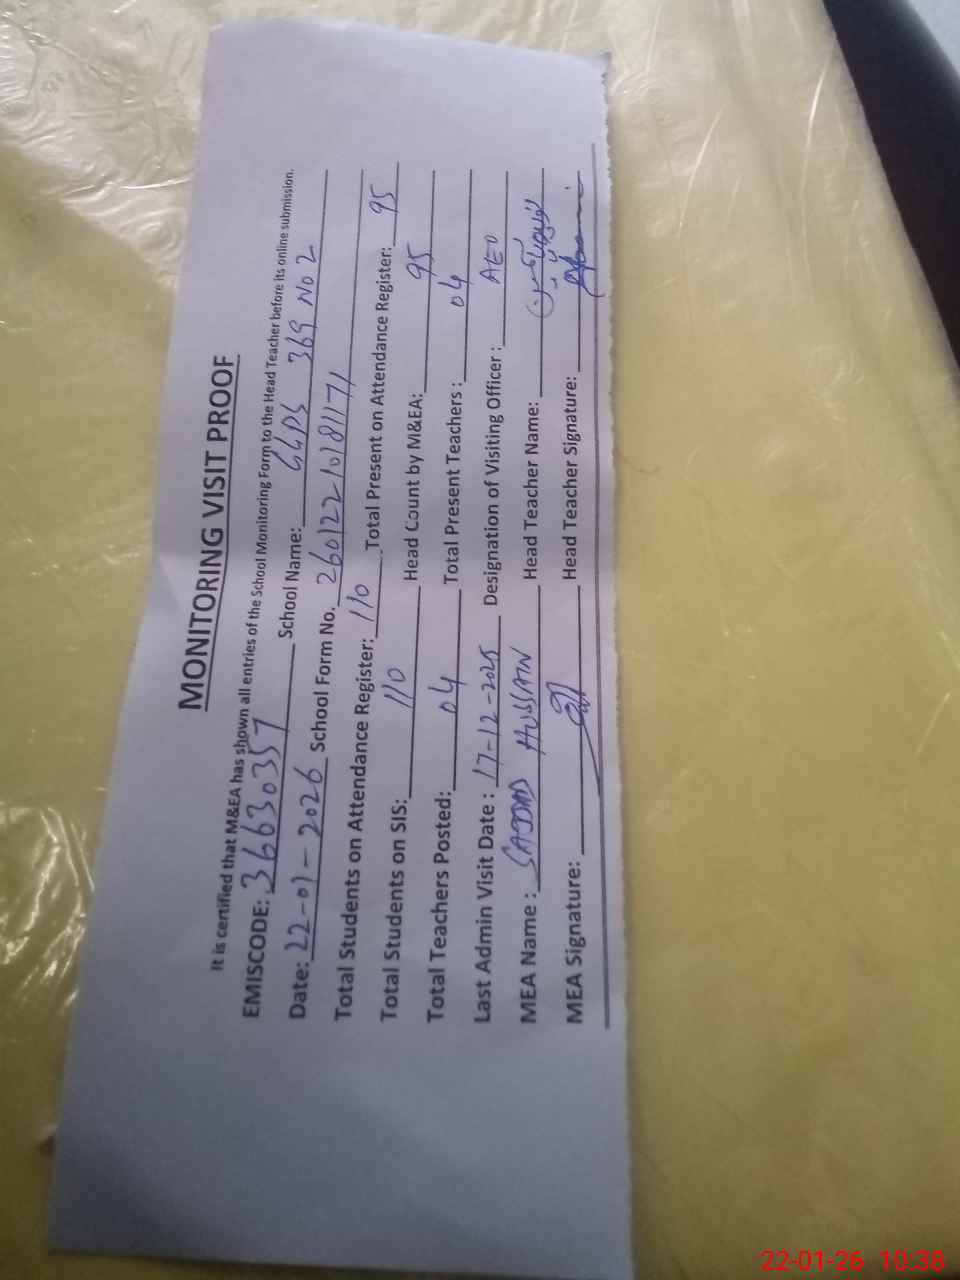 MONITORING VISIT PROOF
It is certified that M&EA has shown all entries of the School Monitoring Form to the Head Teacher before its online submission.
EMISCODE: 36630357 School Name: GGPS 369 No 2
Date: 22-01-2026 School Form No. 26012210181171
Total Students on Attendance Register: 110 Total Present on Attendance Register: 95
Total Students on SIS: 110 Head Count by M&EA: 95
Total Teachers Posted: 04 Total Present Teachers: 04
Last Admin Visit Date: 17-12-2025 Designation of Visiting Officer: AEO
MEA Name: SAJJAD HUSSAIN Head Teacher Name:
MEA Signature: Head Teacher Signature:
22-01-26 10:38